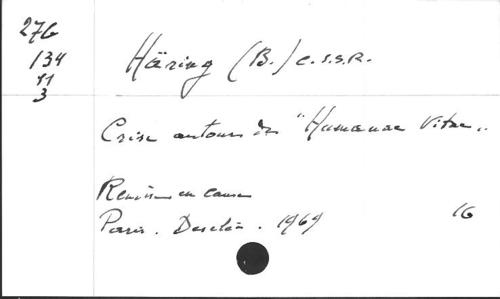 276
134
11
3
Häring (B.) c.s.s.R.
Crise autour de "Humanae Vitae"
Remise en cause
Paris. Desclée. 1969
16